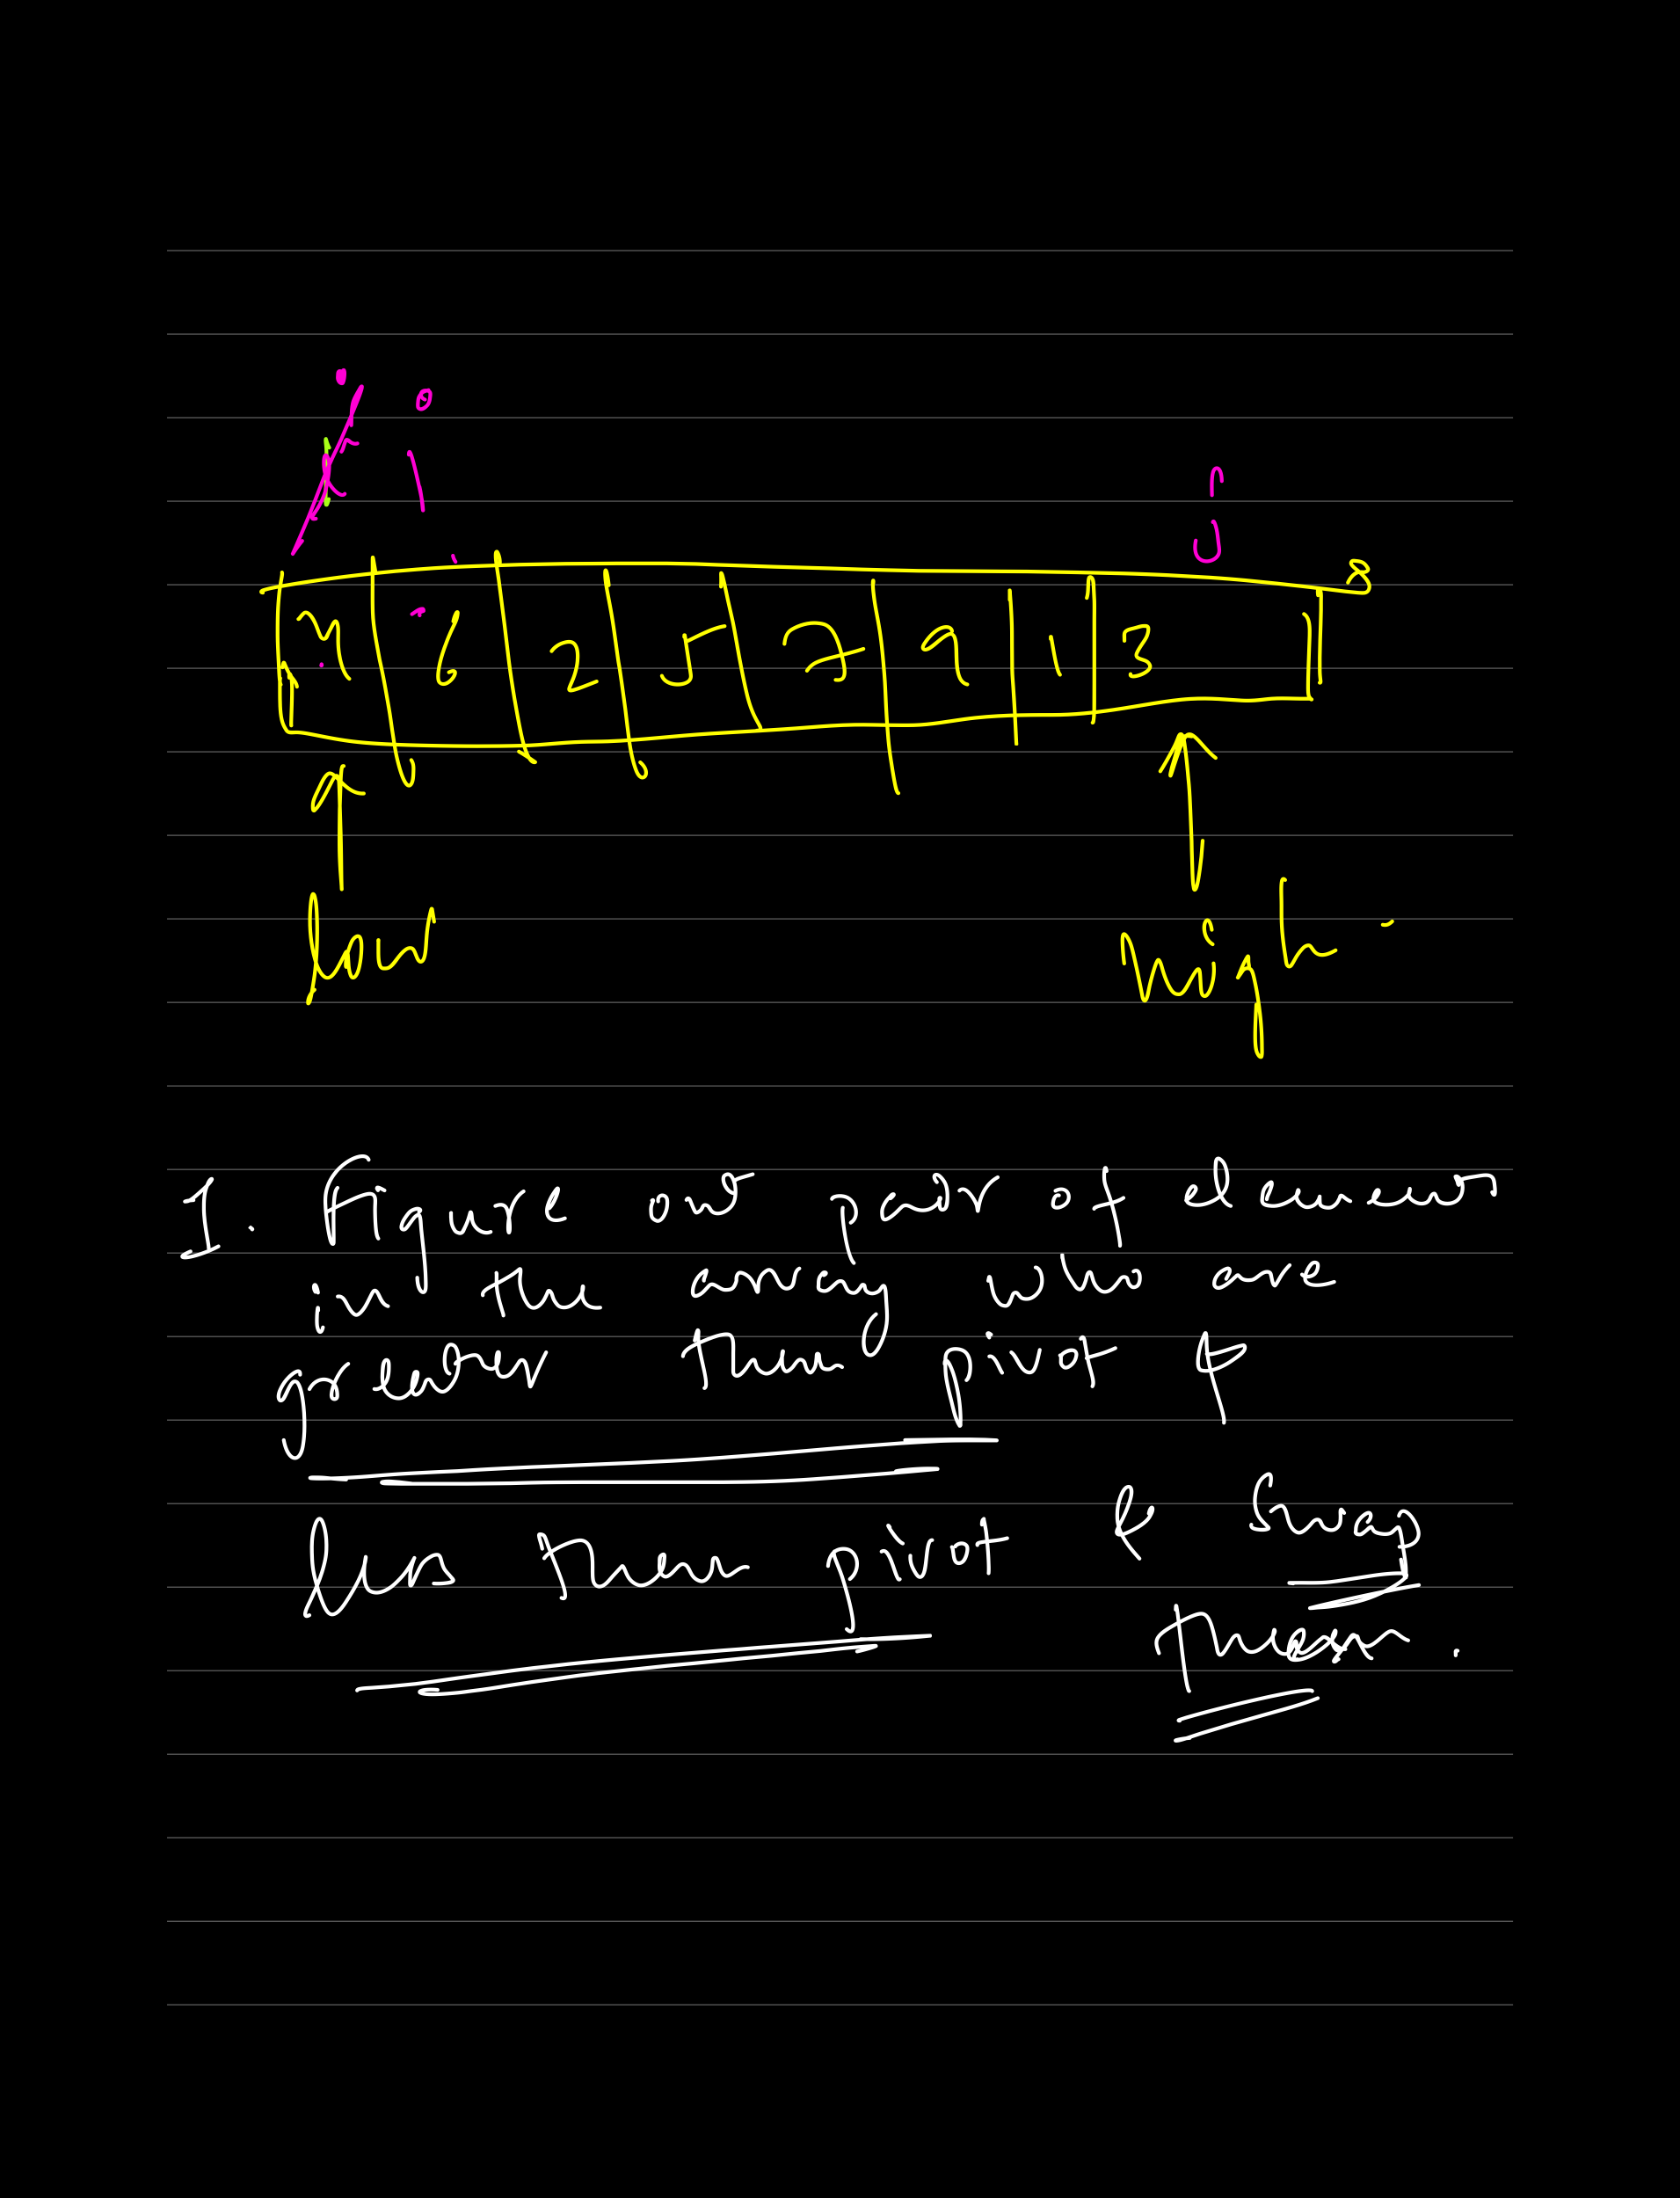 i
j
4 6 2 5 7 9 1 3
low
high
1. Figure out pair of elements
in the array who are
greater than pivot &
less than pivot & Swap
them.